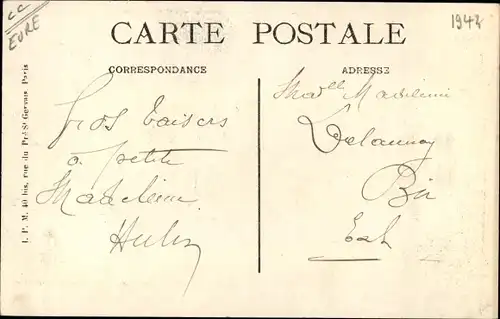 CC
EURE
CARTE POSTALE
1942
CORRESPONDANCE
ADRESSE
I. P. M. 40 bis, rue du Pré-St-Gervais Paris
Gros baisers
à petite
Madeleine
Madelle Madeleine
Delaunay